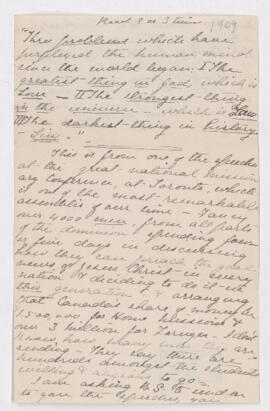 1909
"Three problems which have
perplexed the human mind
since the world began. I The
greatest thing in God, which is
Love — II The strongest thing
in the universe — which is Law
III The darkest thing in history
— Sin."
This is from one of the speeches
at the great national mission
ary Conference, at Toronto, which
is one of the most remarkable
assemblies of our time — Fancy
over 4000 men, from all parts
of the dominion spending four
or five days in discussing
how they can preach the good
news of Jesus Christ in every
nation & deciding to do it in
this generation & arranging
that Canada's share of money be
1.300,000 for Home missions &
over 3 million for Foreign — I don't
know how many men they are
sending — They say there are
hundreds amongst the students
willing & to go —
I am asking to send on
to you the speeches, you